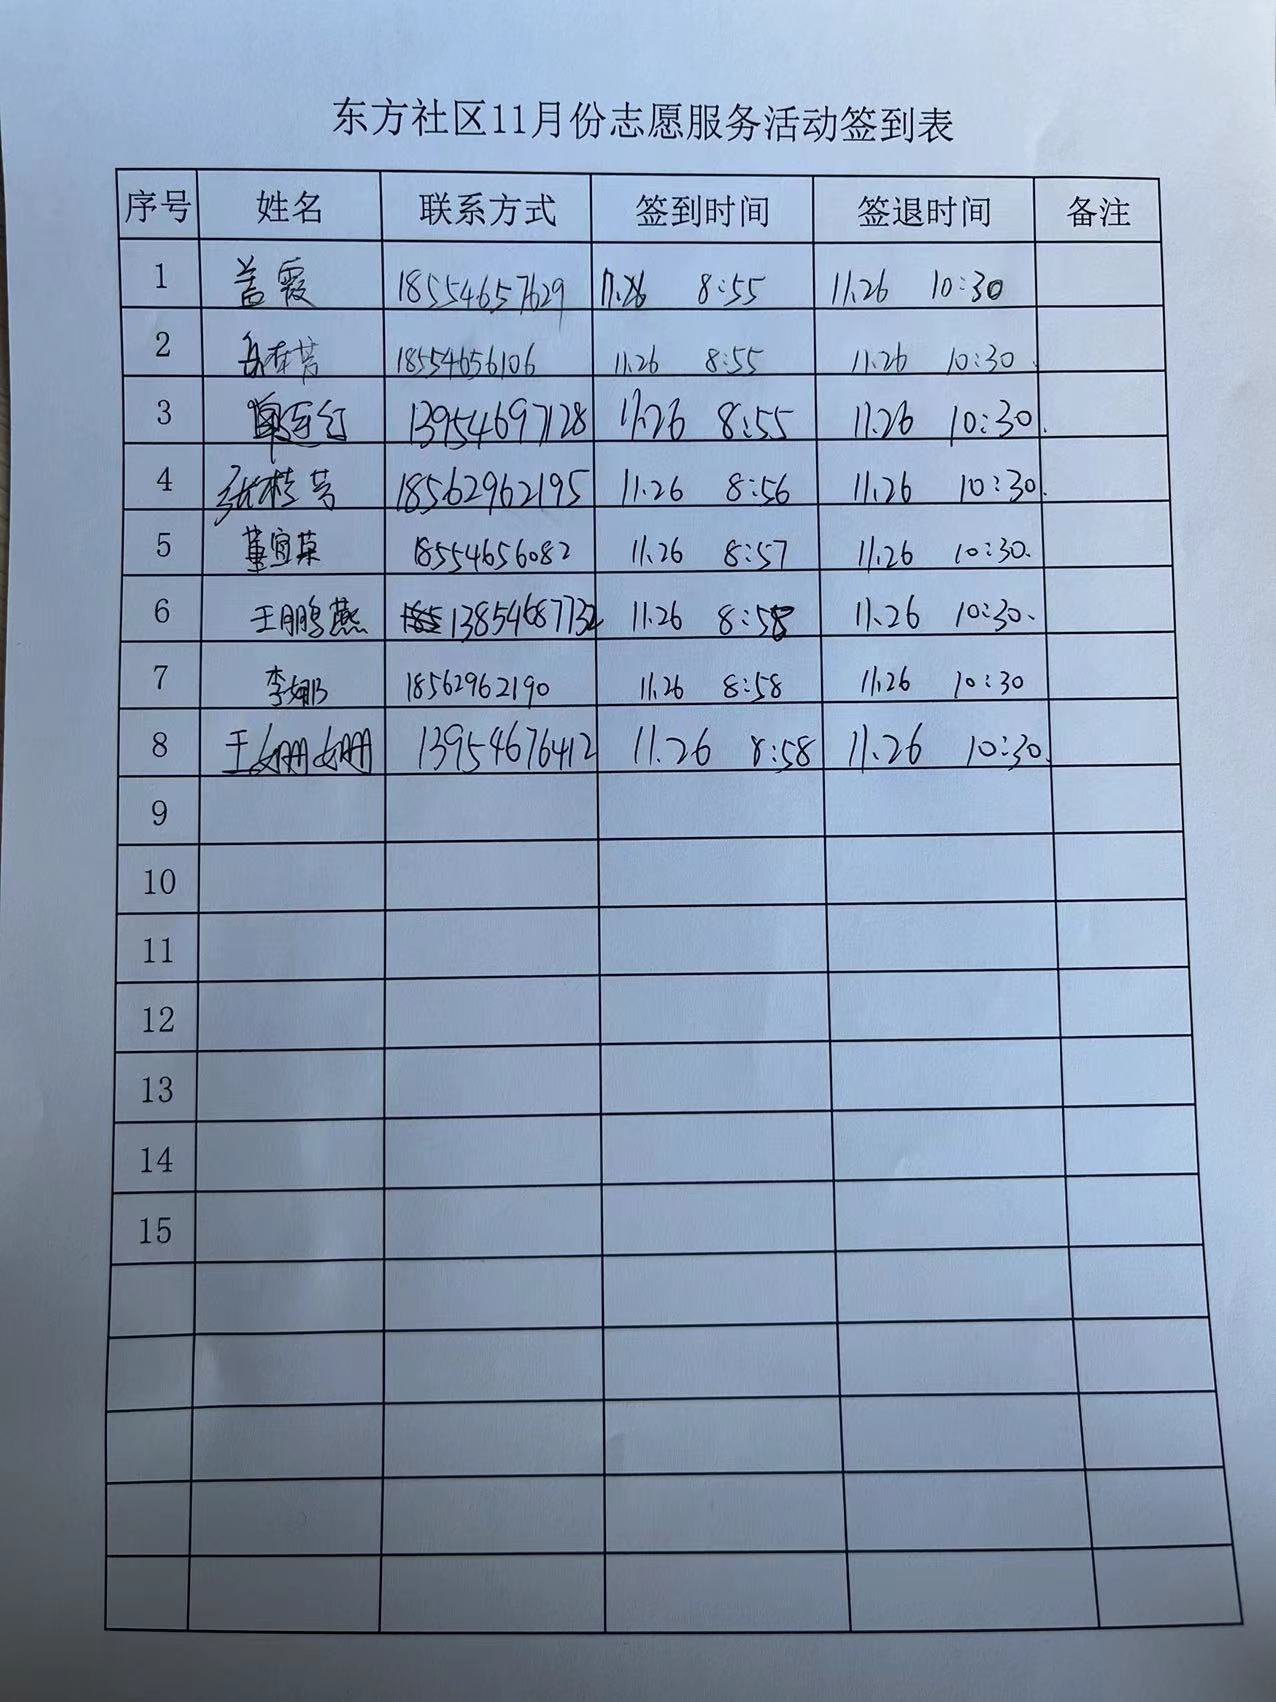 东方社区11月份志愿服务活动签到表
序号 姓名 联系方式 签到时间 签退时间 备注
1 盖霞 18554657629 11.26 8:55 11.26 10:30
2 18554656106 11.26 8:55 11.26 10:30
3 13954697128 11.26 8:55 11.26 10:30.
4 张桂芳 18562962195 11.26 8:56 11.26 10:30.
5 董宜菊 18554656082 11.26 8:57 11.26 10:30.
6 王鹏燕 13854687732 11.26 8:58 11.26 10:30.
7 李娜 18562962190 11.26 8:58 11.26 10:30
8 王姗姗 13954676412 11.26 8:58 11.26 10:30.
9
10
11
12
13
14
15